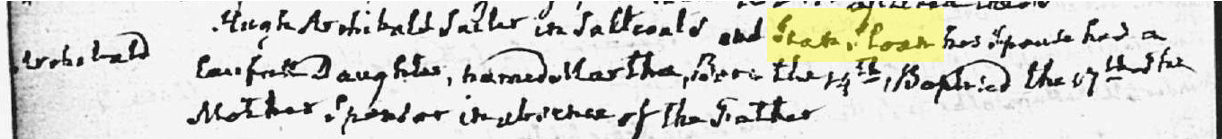 Hugh Archibald Sailer in Saltcoats and Jean Sloan his Spouse had a
Archibald Laufull Daughter, named Martha, Born the 14th, Baptized the 17th and the
Mother Sponsor in absence of the Father